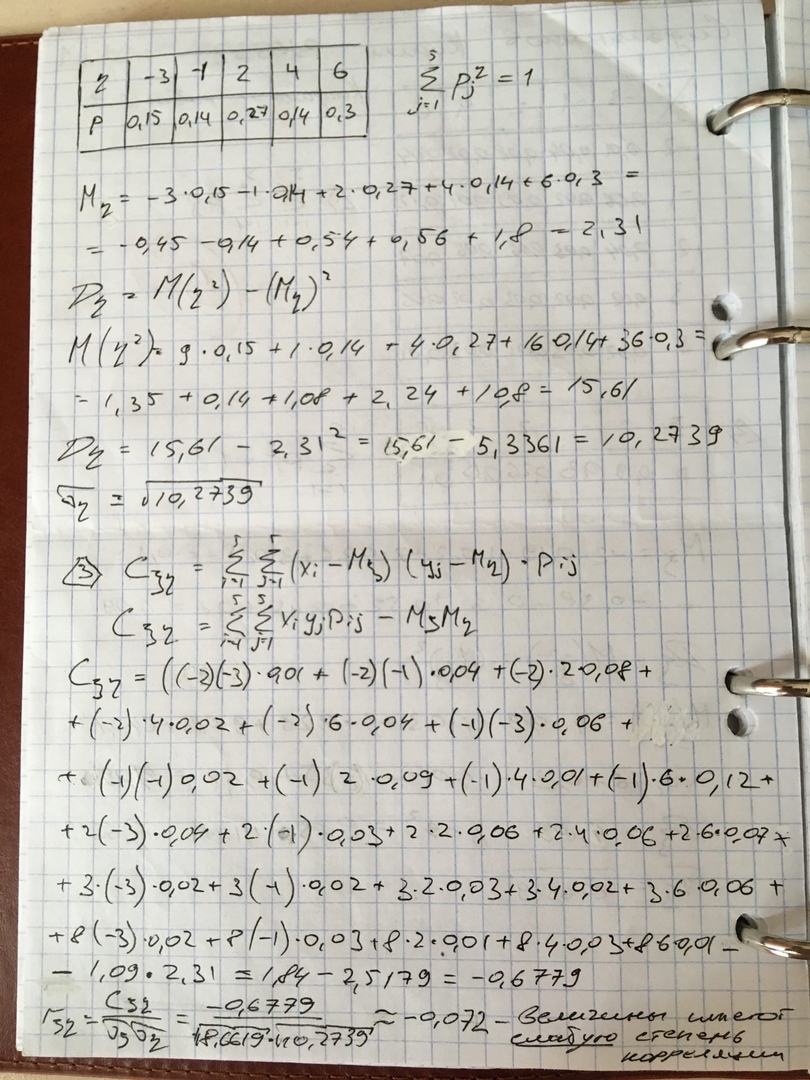 η -3 -1 2 4 6
P 0,15 0,14 0,27 0,14 0,3
∑_{j=1}^{5} P_j^2 = 1
M_η = -3·0,15 -1·0,14 + 2·0,27 + 4·0,14 + 6·0,3 =
= -0,45 -0,14 + 0,54 + 0,56 + 1,8 = 2,31
D_η = M(η²) - (M_η)²
M(η²) = 9·0,15 + 1·0,14 + 4·0,27 + 16 0,14 + 36·0,3 =
= 1,35 + 0,14 + 1,08 + 2,24 + 10,8 = 15,61
D_η = 15,61 - 2,31² = 15,61 - 5,3361 = 10,2739
σ_η = √10,2739
3 C_ξη = ∑_{i=1}^{5} ∑_{j=1}^{5} (x_i - M_ξ) (y_j - M_η) · P_ij
C_ξη = ∑_{i=1}^{5} ∑_{j=1}^{5} x_i y_j P_ij - M_ξ M_η
C_ξη = ((-2)(-3)·0,01 + (-2)(-1)·0,04 + (-2)·2·0,08 +
+ (-2)·4·0,02 + (-2)·6·0,04 + (-1)(-3)·0,06 +
+ (-1)(-1) 0,02 + (-1) 2·0,09 + (-1)·4·0,01 + (-1)·6·0,12 +
+ 2(-3)·0,04 + 2·(-1)·0,03 + 2·2·0,06 + 2·4·0,06 + 2·6·0,07 +
+ 3·(-3)·0,02 + 3(-1)·0,02 + 3·2·0,03 + 3·4·0,02 + 3·6·0,06 +
+ 8(-3)·0,02 + 8(-1)·0,03 + 8·2·0,01 + 8·4·0,03 + 8 6 0,01 -
- 1,09·2,31 = 1,84 - 2,5179 = -0,6779
r_ξη = C_ξη / σ_ξ σ_η = -0,6779 / √8,6619·√10,2739 ≈ -0,072 - Величины имеют
слабую степень
корреляции